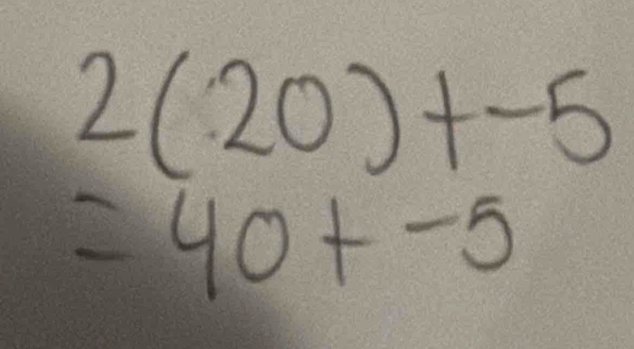 2(20)+-5
=40+-5